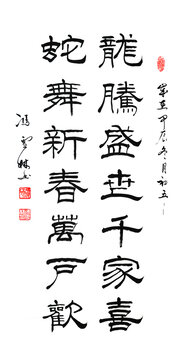 龍騰盛世千家喜
蛇舞新春萬戶歡
歲在甲辰冬月初五